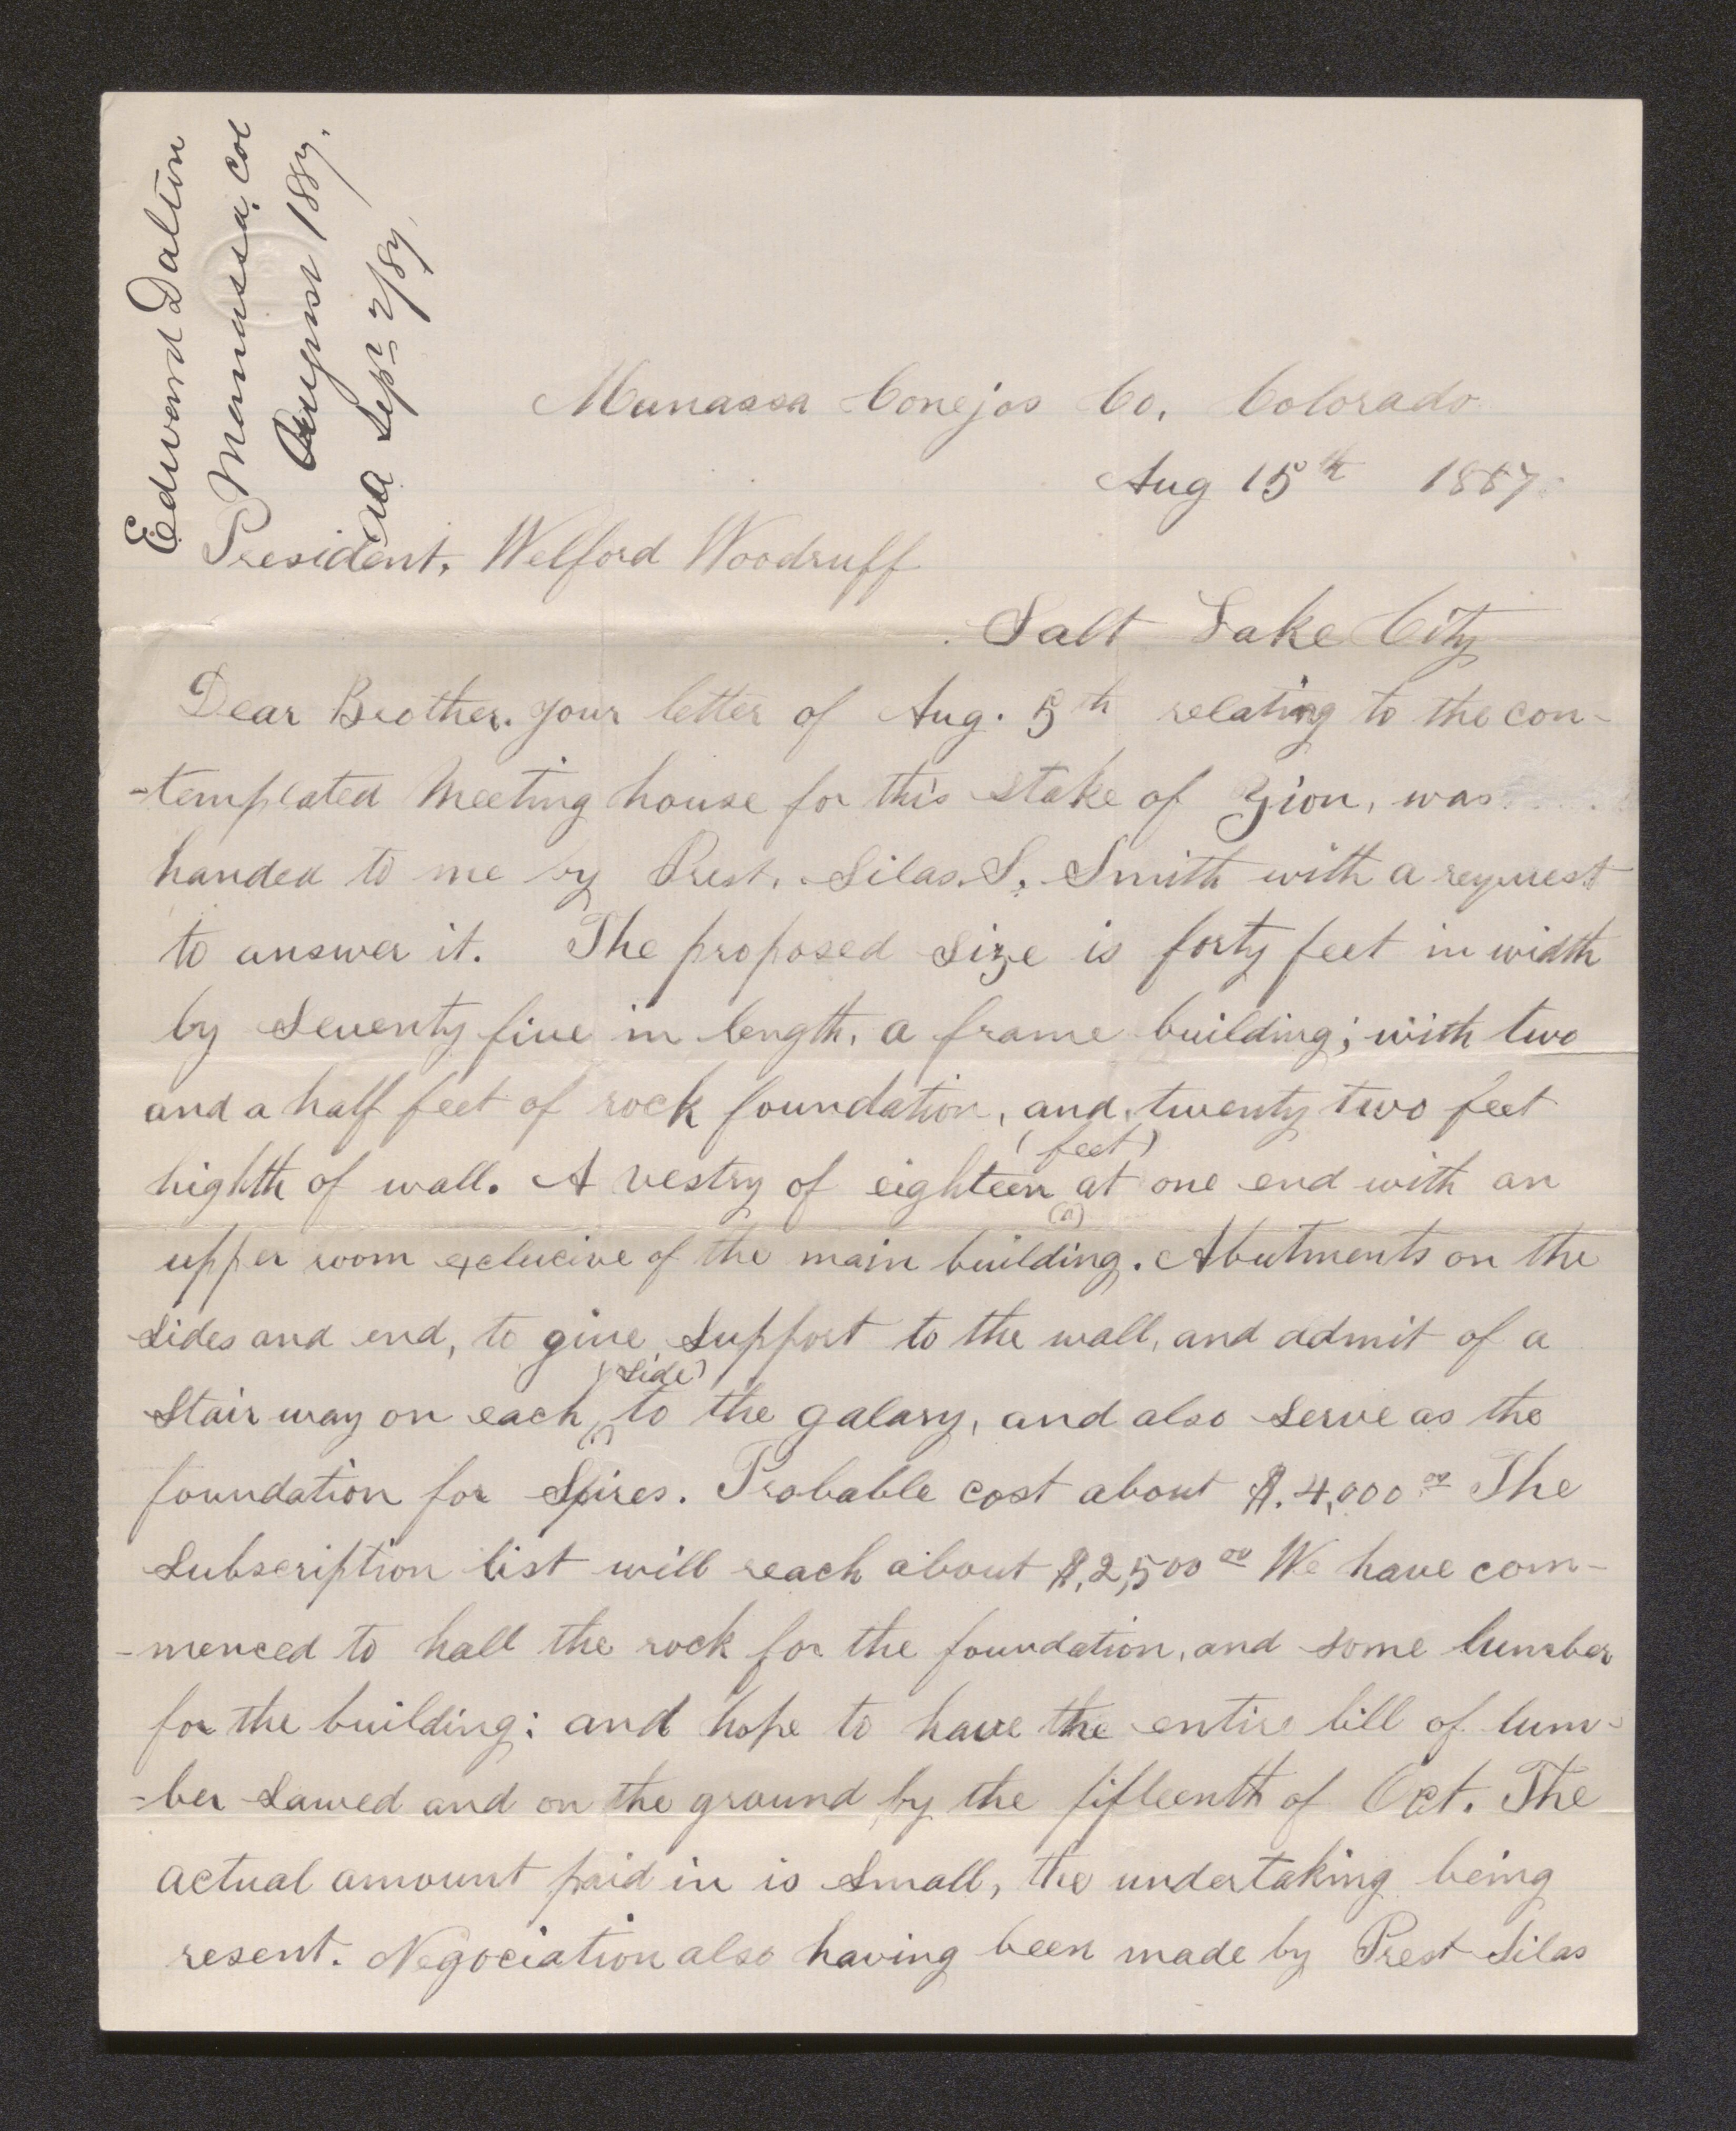 Edward Dalton
Manassa. Col
August 1887.
Sept 2/87.
Manassa Conejos Co. Colorado
Aug 15th 1887.
President. Welford Woodruff
Salt Lake City
Dear Brother. your letter of Aug. 5th relating to the con-
-templated Meeting house for this stake of Zion, was
handed to me by Prest. Silas. S. Smith with a request
to answer it. The proposed size is forty feet in width
by seventy five in length, a frame building; with two
and a half feet of rock foundation, and twenty two feet
(feet)
highth of wall. A vestry of eighteen at one end with an
(^)
upper room exclucive of the main building. Abutments on the
sides and end, to give support to the wall, and admit of a
(side)
Stair way on each to the galary, and also serve as the
(^)
foundation for Spires. Probable cost about $. 4,000.00 The
subscription list will reach about $, 2,500 00 We have com-
-menced to hall the rock for the foundation, and some lumber
for the building; and hope to have the entire bill of lum-
-ber sawed and on the ground by the fifteenth of Oct. The
actual amount paid in is small, the undertaking being
resent. Negociation also having been made by Prest Silas